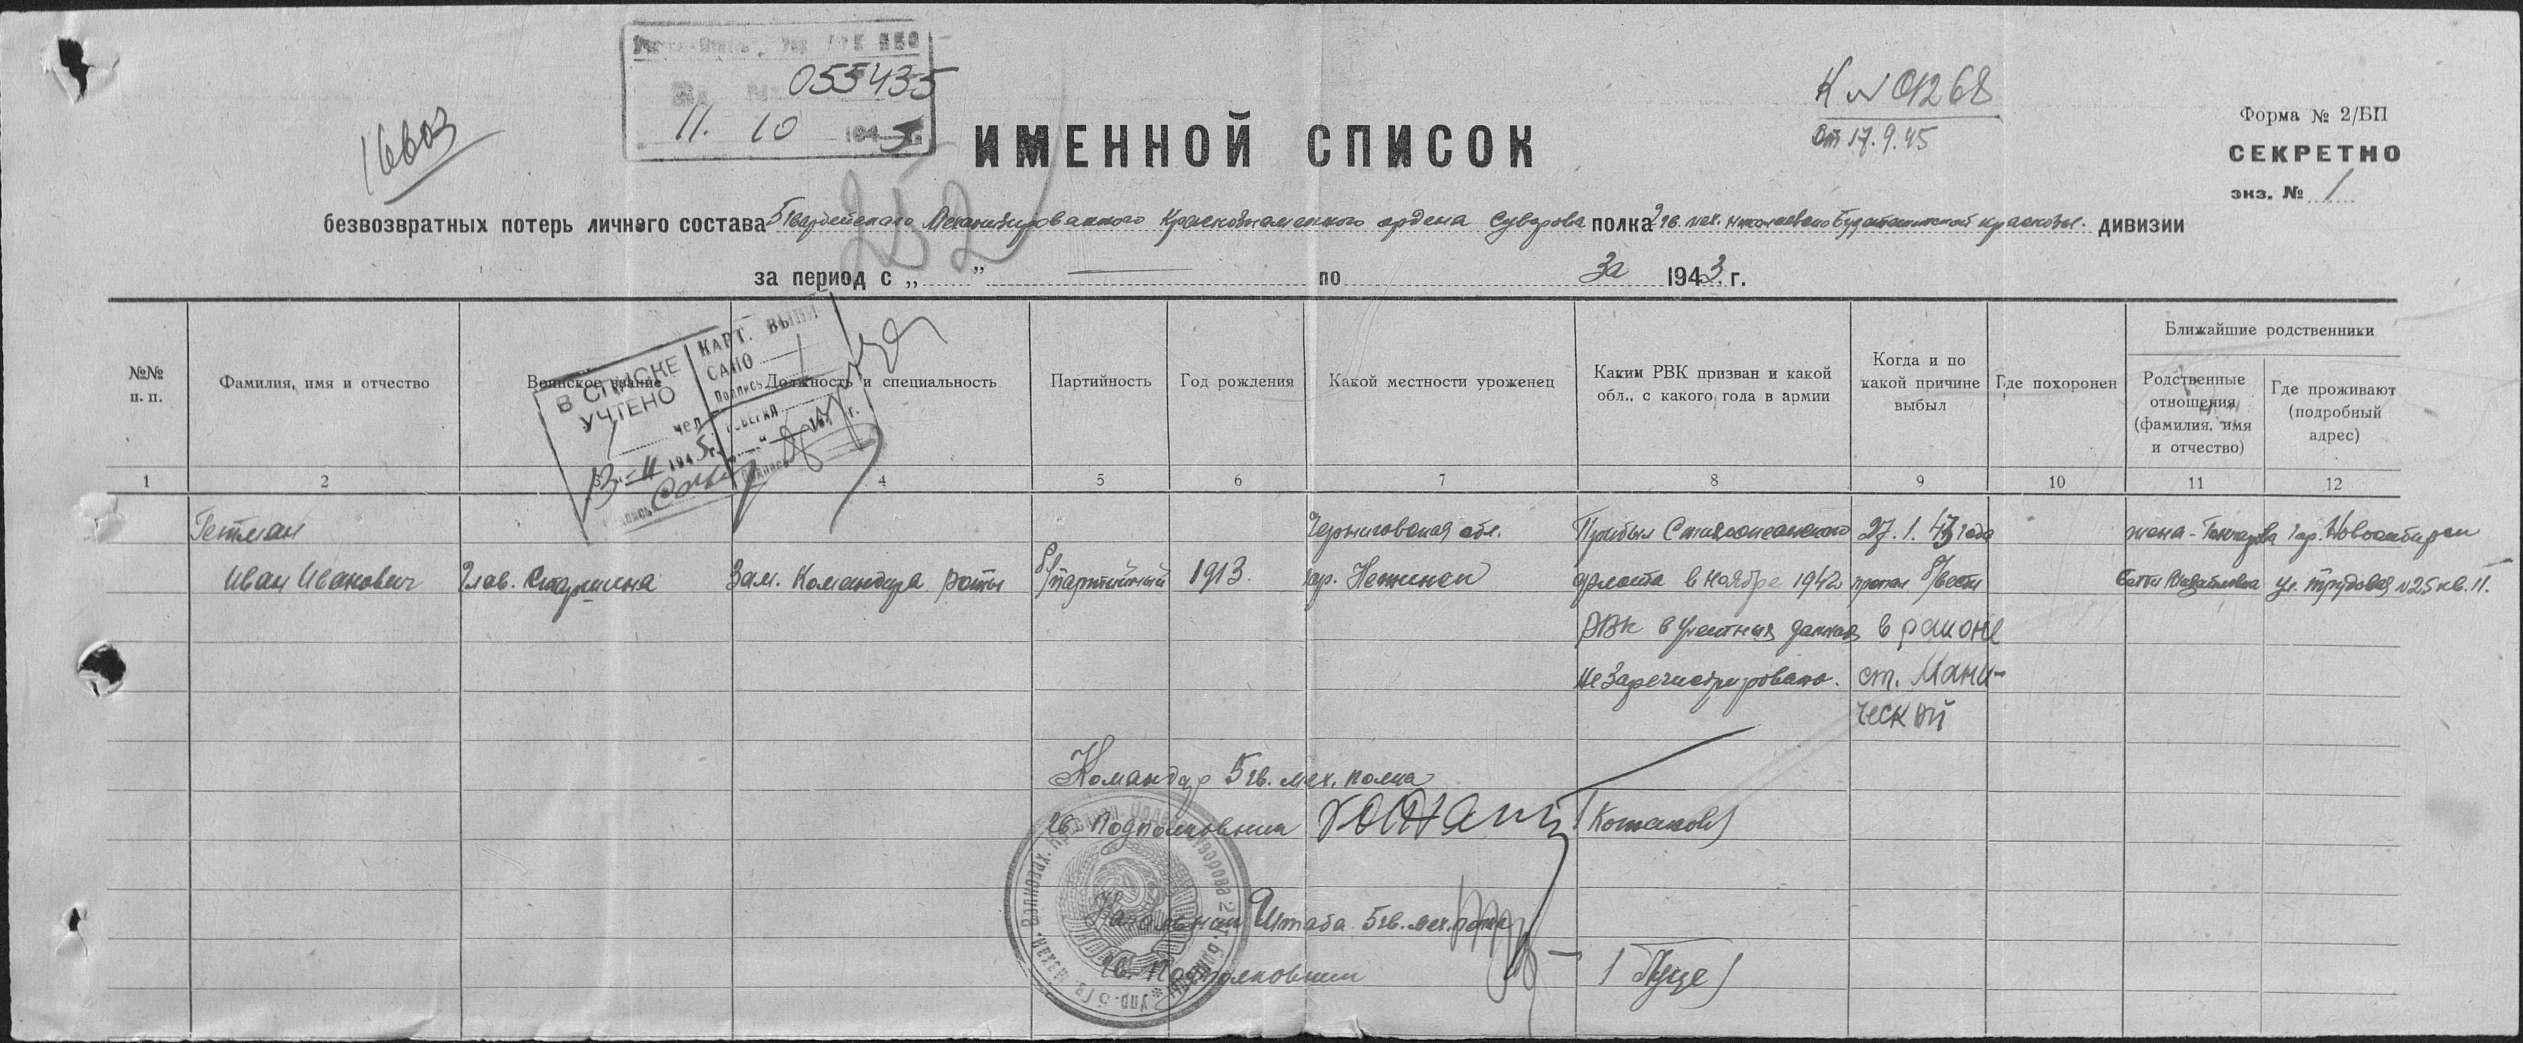 055435
11. 10 1945 г.
К № 01268
от 17.9.45
Форма № 2/БП
СЕКРЕТНО
экз. № 1
ИМЕННОЙ СПИСОК
безвозвратных потерь личного состава 5 Гвардейского Механизированного Краснознаменного ордена Суворова полка 2 гв. мех. Николаевско Будапештской краснозн. дивизии
252
за период с „ ” — по За 1943 г.
В СПИСКЕ УЧТЕНО
чел.
13 - II 1945 г.
КАРТ. ВЫПИСАНО 1
Подпись
№№ п. п.
Фамилия, имя и отчество
Воинское звание
Должность и специальность
Партийность
Год рождения
Какой местности уроженец
Каким РВК призван и какой обл., с какого года в армии
Когда и по какой причине выбыл
Где похоронен
Ближайшие родственники
Родственные отношения (фамилия, имя и отчество)
Где проживают (подробный адрес)
1 2 3 4 5 6 7 8 9 10 11 12
Гетман Черниговская обл. Прибыл Сталинградского 27.1.43 года жена - гор. Новосибирск
Иван Иванович Глав. Старшина Зам. Командира роты б/партийный 1913. гор. Нежинск фронта в ноябре 1942 пропал б/вести ул. Трудовая №25 кв. 11.
РВК в учетных данных в районе
не зарегистрировано. ст. Мани-
ческой
Командир 5 гв. мех. полка
гв. Подполковник (Котаков)
Начальник Штаба 5 гв. мех. полка
гв. Подполковник (Пуце)